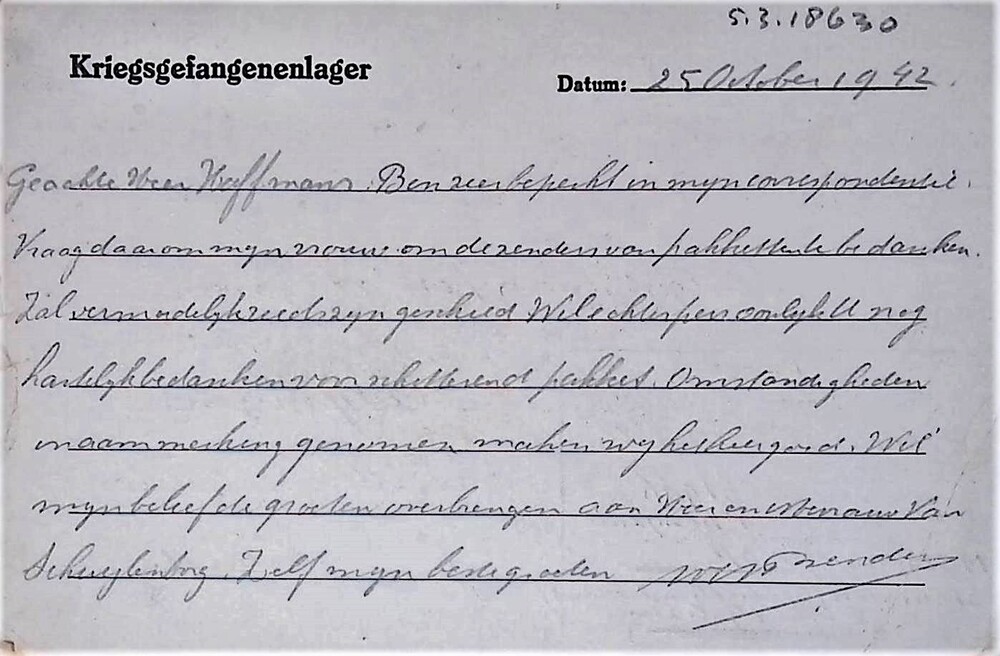 5.3.18630
Kriegsgefangenenlager
Datum: 25 October 1942.
Geachte Heer Hoffmans. Ben zeer beperkt in mijn correspondentie.
Vraag daarom mijn vrouw om de zenders van pakketten te bedanken.
Zal vermoedelijk reeds zijn geschied. Wil echter persoonlijk U nog
hartelijk bedanken voor schitterend pakket. Omstandigheden
in aanmerking genomen maken wij het zeer goed. Wil
mijn beleefde groeten overbrengen aan Heer en Mevrouw Van
Schuylenborg. Zelf mijn beste groeten